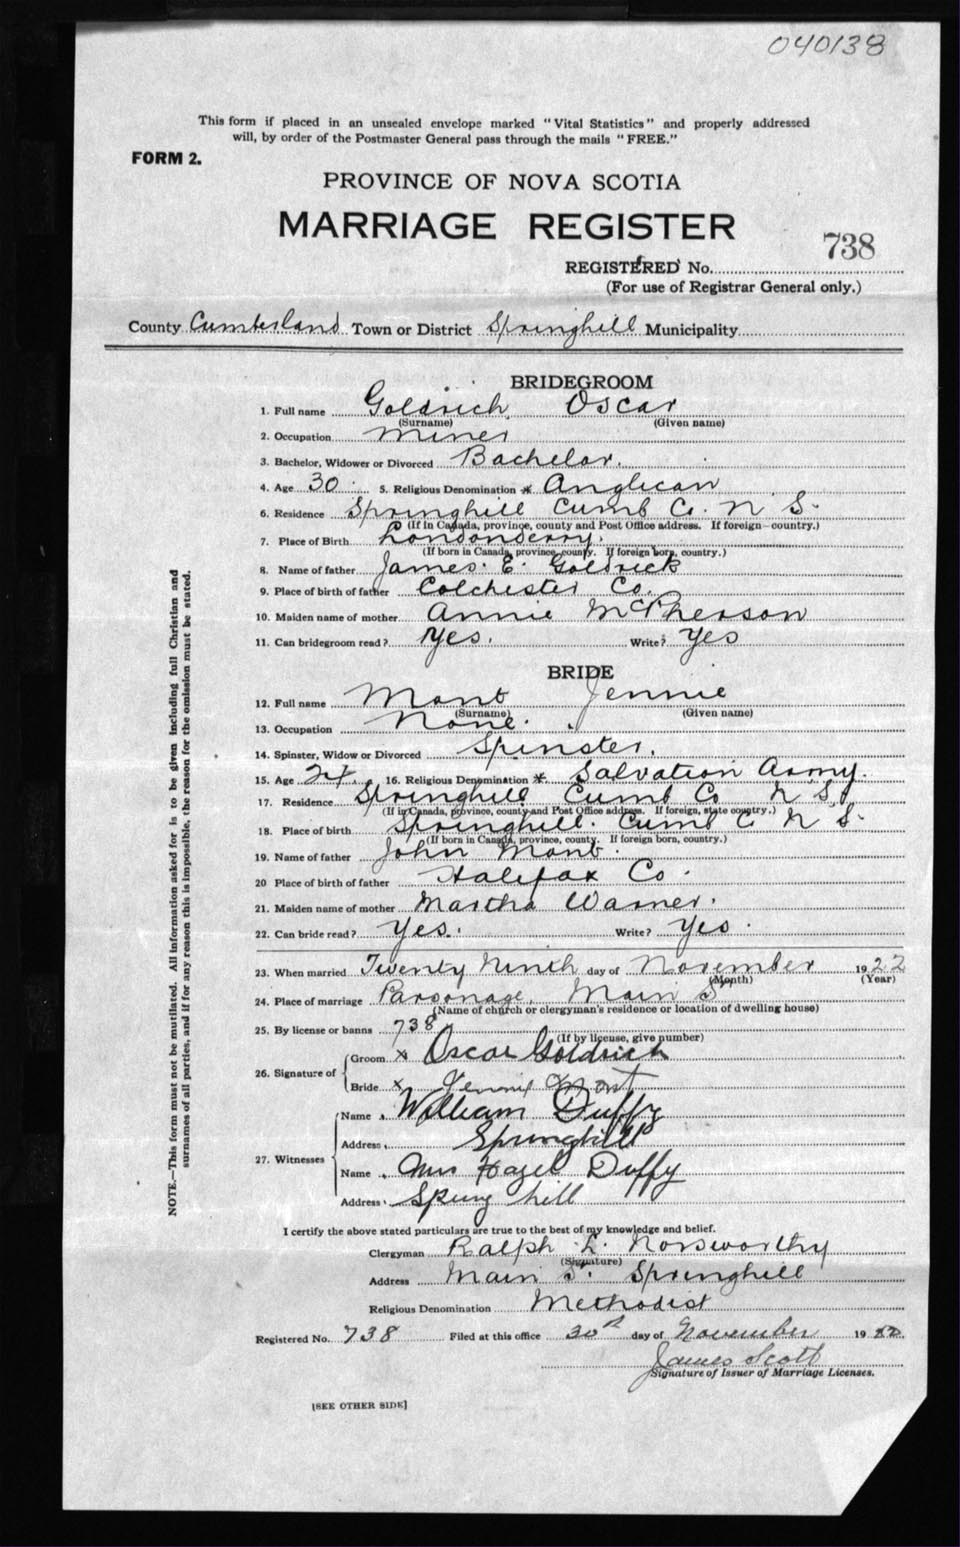 040138
This form if placed in an unsealed envelope marked "Vital Statistics" and properly addressed
will, by order of the Postmaster General pass through the mails "FREE."
FORM 2.
PROVINCE OF NOVA SCOTIA
MARRIAGE REGISTER
738
REGISTERED No.
(For use of Registrar General only.)
County Cumberland Town or District Springhill Municipality
BRIDEGROOM
1. Full name Goldrich Oscar
(Surname) (Given name)
2. Occupation Miner
3. Bachelor, Widower or Divorced Bachelor.
4. Age 30 5. Religious Denomination * Anglican
6. Residence Springhill Cumb Co. N S.
(If in Canada, province, county and Post Office address. If foreign-country.)
7. Place of Birth Londonderry.
(If born in Canada, province, county. If foreign born, country.)
8. Name of father James. E. Goldrick
9. Place of birth of father Colchester Co.
10. Maiden name of mother Annie McPherson
11. Can bridegroom read? Yes. Write? Yes
BRIDE
12. Full name Mont Jennie
(Surname) (Given name)
13. Occupation None.
14. Spinster, Widow or Divorced Spinster.
15. Age 24 16. Religious Denomination *. Salvation Army.
17. Residence Springhill Cumb Co N S.
(If in Canada, province, county and Post Office address. If foreign, state country.)
18. Place of birth Springhill. Cumb C N S.
(If born in Canada, province, county. If foreign born, country.)
19. Name of father John Mont.
20 Place of birth of father Halifax Co.
21. Maiden name of mother Martha Warner.
22. Can bride read? Yes. Write? Yes.
23. When married Twenty Ninth day of November 1922
(Month) (Year)
24. Place of marriage Parsonage, Main St
(Name of church or clergyman's residence or location of dwelling house)
25. By license or banns 738
(If by license, give number)
26. Signature of
Groom x Oscar Goldrich
Bride x Jennie Mont
27. Witnesses
Name William Duffy
Address Springhill
Name Mrs Hazel Duffy
Address Spring hill
I certify the above stated particulars are true to the best of my knowledge and belief.
Clergyman Ralph E. Norsworthy
(Signature)
Address Main St. Springhill
Religious Denomination Methodist
Registered No. 738 Filed at this office 30th day of November 19
James Scott
Signature of Issuer of Marriage Licenses.
[SEE OTHER SIDE]
NOTE.—This form must not be mutilated. All information asked for is to be given including full Christian and
surnames of all parties, and if for any reason this is impossible, the reason for the omission must be stated.